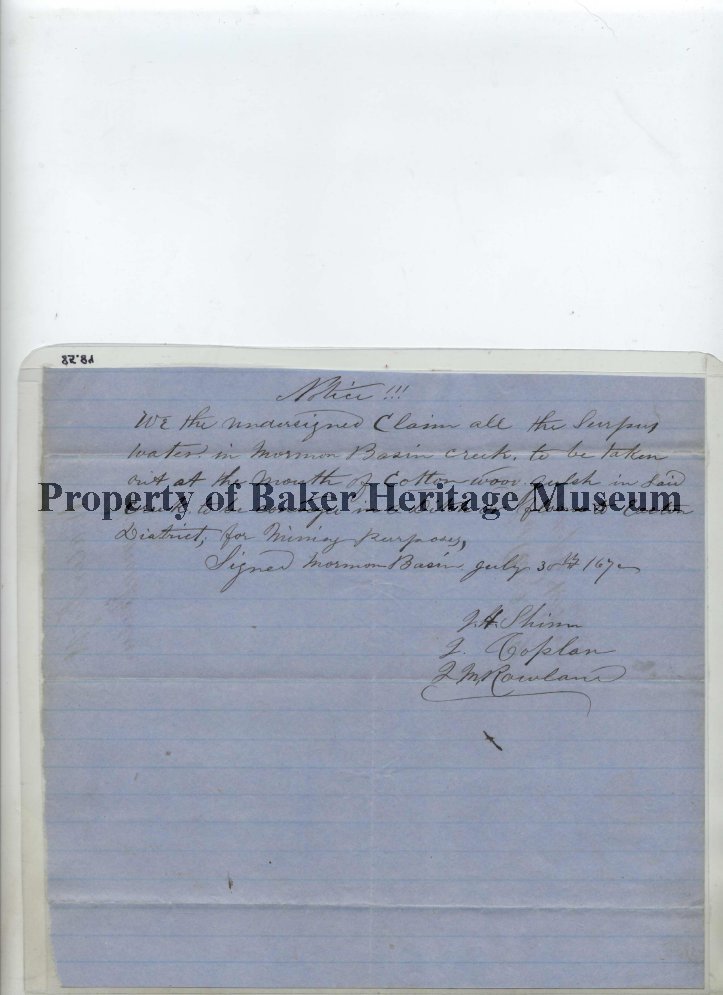 Notice !!!
We the undersigned Claim all the Surpus
water in Mormon Basin creek, to be taken
out at the Mouth of Cotton wood gulsh in Said
Property of Baker Heritage Museum
District, for Mining purposes,
Signed Mormon Basin july 30th
J H Shinn
J. Coplan
J M Rowland